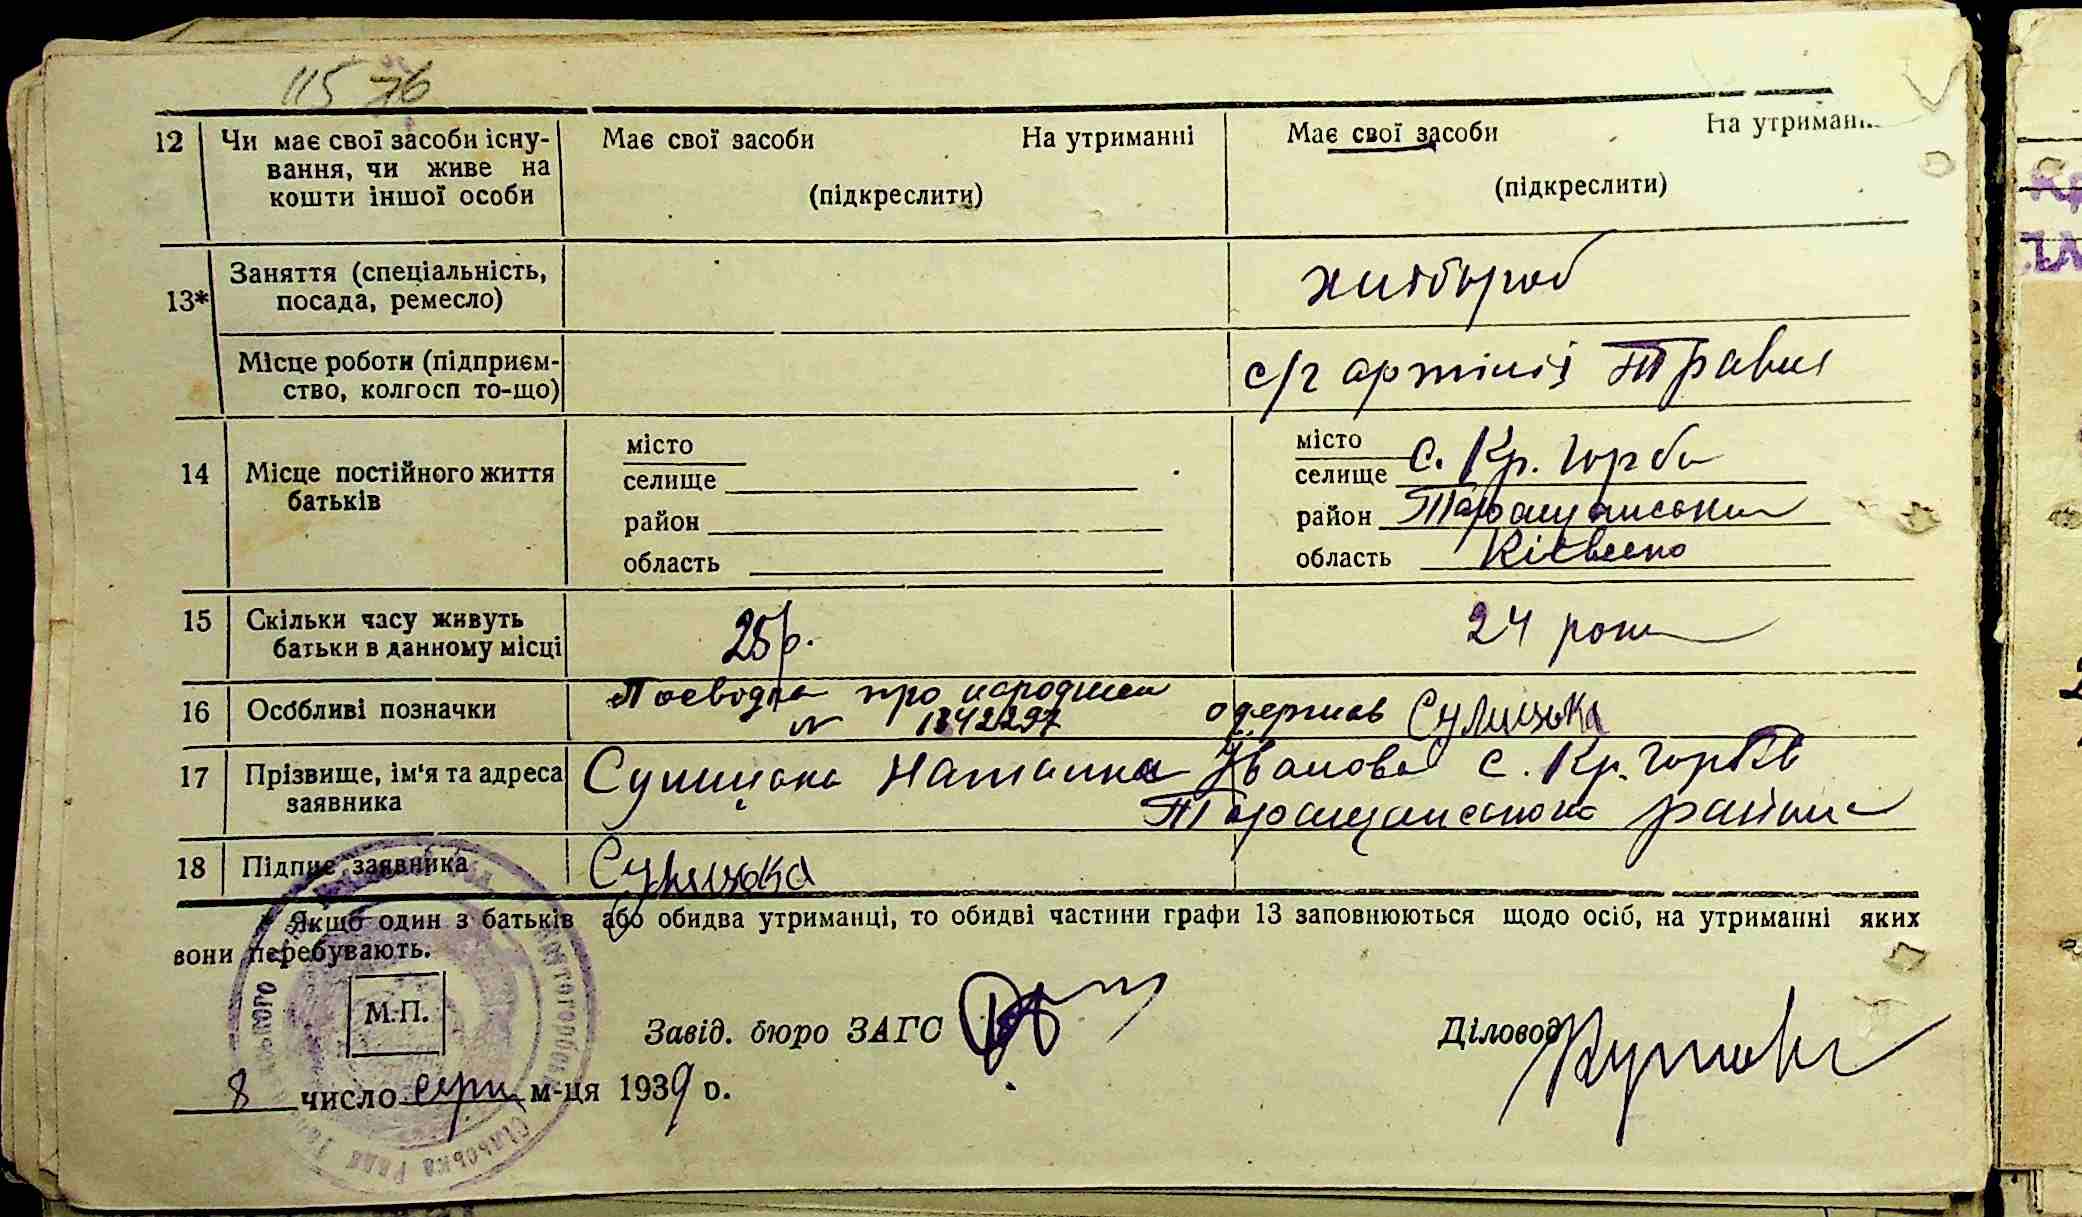 115 76
12 Чи має свої засоби існу- Має свої засоби На утриманні Має свої засоби На утриман
вання, чи живе на
кошти іншої особи (підкреслити) (підкреслити)
13* Заняття (спеціальність,
посада, ремесло) хлібороб
Місце роботи (підприєм-
ство, колгосп то-що) с/г артілі Травня
14 Місце постійного життя
батьків
місто
селище
район
область
місто
селище с. Кр. Горби
район Таращанський
область Київсько
15 Скільки часу живуть
батьки в данному місці 25 р. 24 роки
16 Особливі позначки
про народжен
№ 1342297 одержав Сулицька
17 Прізвище, ім'я та адреса
заявника
Сулицька Наталка Іванова с. Кр. Горбів
Таращанського району
18 Підпис заявника Сулицька
* Якщо один з батьків або обидва утриманці, то обидві частини графи 13 заповнюються щодо осіб, на утриманні яких
вони перебувають.
М.П.
Завід. бюро ЗАГС Діловод
8 число серп м-ця 1939 р.
Сільська Рада